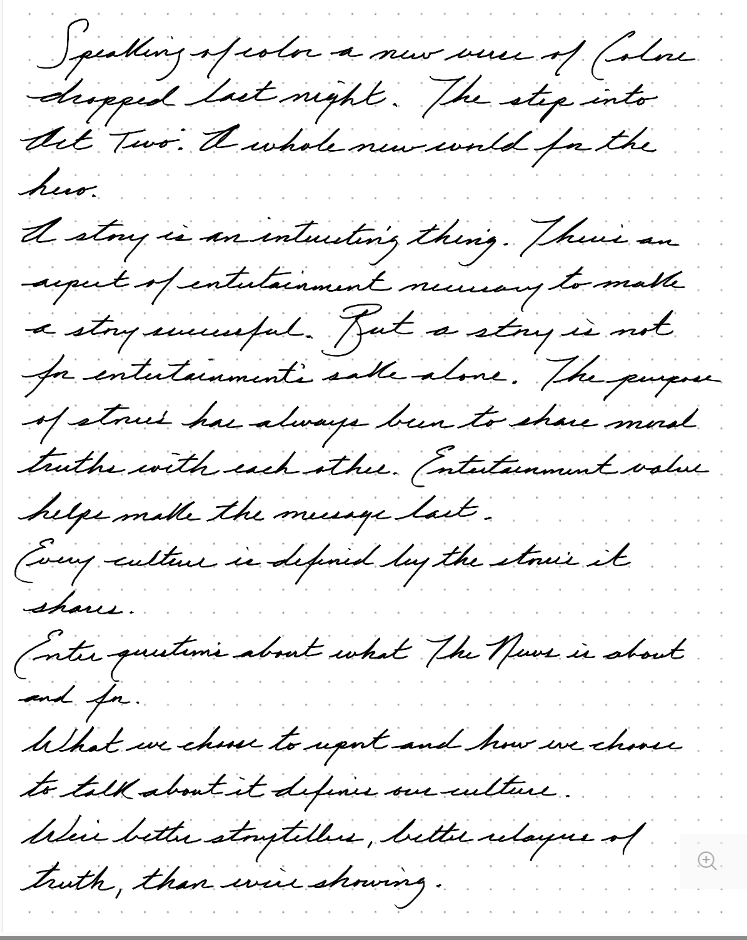 Speaking of color a new verse of Colors
dropped last night. The step into
Act Two. A whole new world for the
hero.
A story is an interesting thing. There's an
aspect of entertainment necessary to make
a story successful. But a story is not
for entertainment's sake alone. The purpose
of stories has always been to share moral
truths with each other. Entertainment value
helps make the message last.
Every culture is defined by the stories it
shares.
Enter questions about what The News is about
and for.
What we choose to report and how we choose
to talk about it defines our culture.
We're better storytellers, better relayers of
truth, than we're showing.